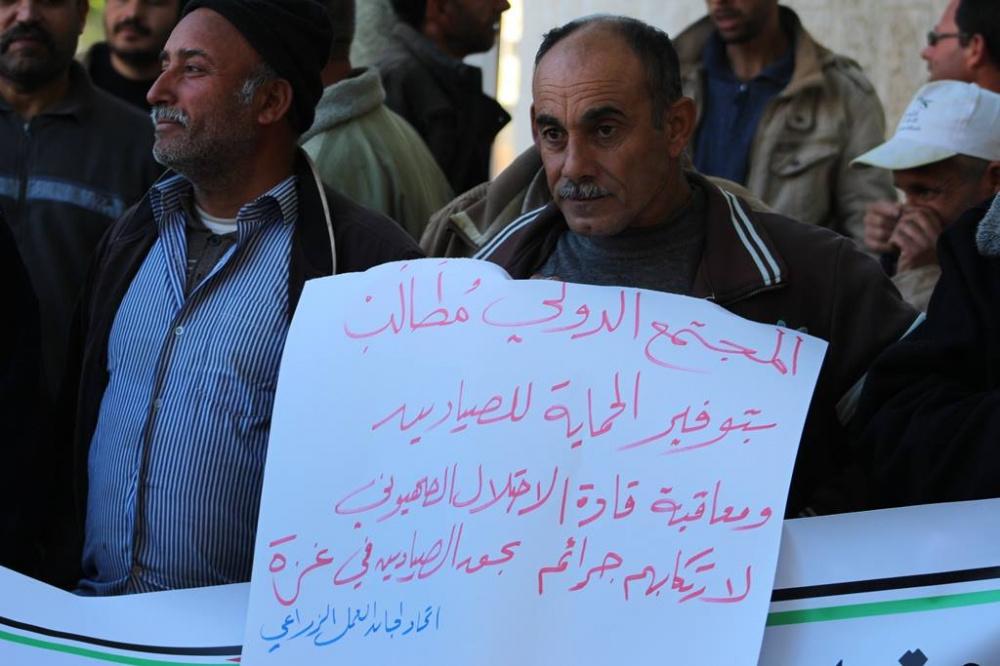 المجتمع الدولي مُطَالَبْ
بتوفير الحماية للصيادين
ومعاقبة قادة الاحتلال الصهيوني
لارتكابهم جرائم بحق الصيادين في غزة
اتحاد لجان العمل الزراعي